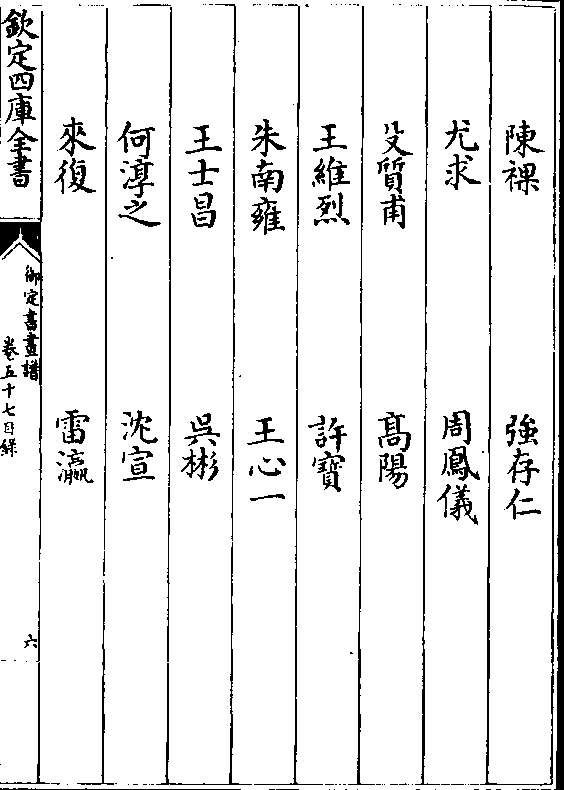 陳祼　強存仁
尤求　周鳳儀
殳質甫　高陽
王維烈　許寶
朱南雍　王心一
王士昌　吳彬
何淳之　沈宣
來復　雷瀛
欽定四庫全書
御定書畫譜
卷五十七目録
六